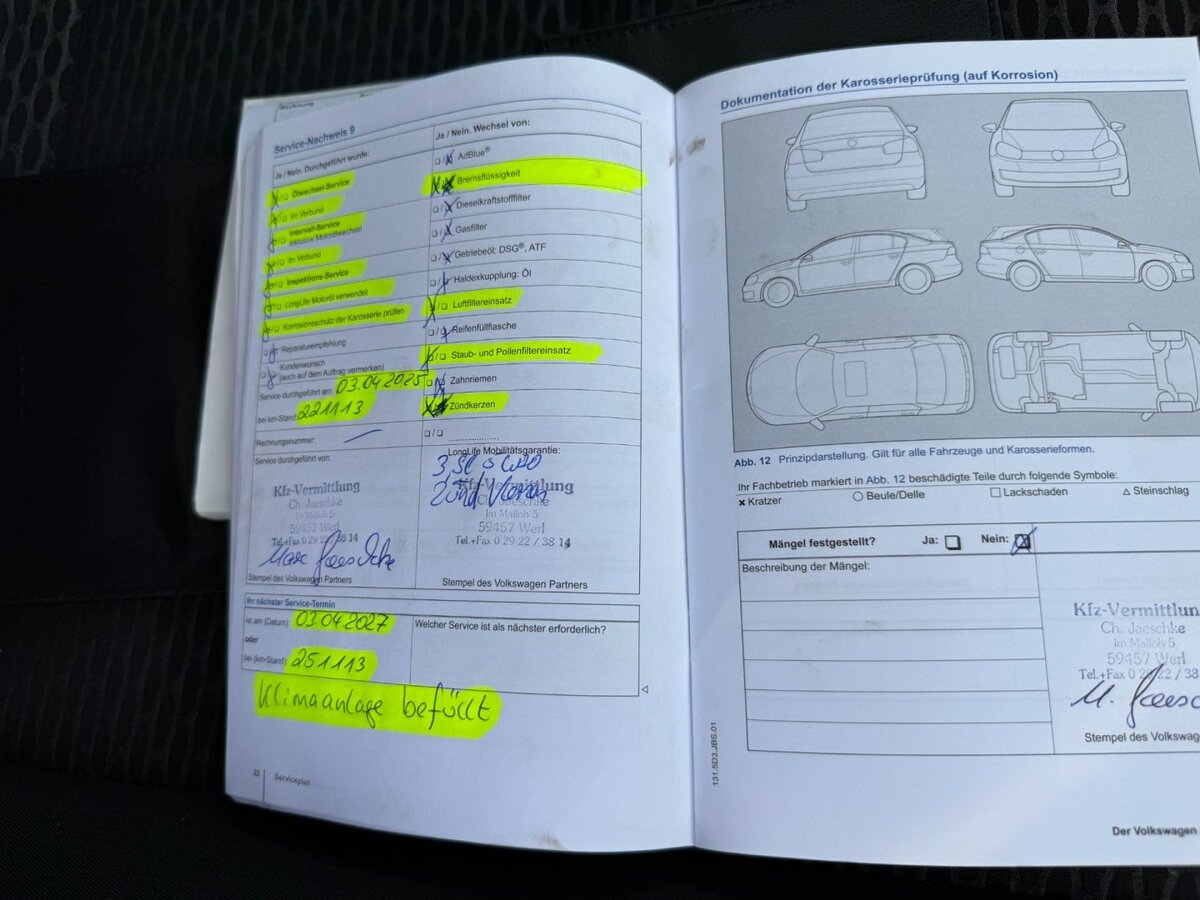 Rechnung
Service-Nachweis 9
Ja / Nein. Durchgeführt wurde:
Ölwechsel-Service
Im Verbund
Intervall-Service
inklusive Motorölwechsel
Im Verbund
Inspektions-Service
LongLife Motoröl verwendet
Korrosionsschutz der Karosserie prüfen
Reparaturempfehlung
Kundenwunsch
(auch auf dem Auftrag vermerken)
Service durchgeführt am: 03.04.2025
bei km-Stand: 221113
Rechnungsnummer:
Service durchgeführt von:
Kfz-Vermittlung
Ch. Jaeschke
Im Mailoh 5
59457 Werl
Tel.+Fax 0 29 22 / 38 14
Stempel des Volkswagen Partners
Ja / Nein. Wechsel von:
AdBlue®
Bremsflüssigkeit
Dieselkraftstofffilter
Gasfilter
Getriebeöl: DSG®, ATF
Haldexkupplung: Öl
Luftfiltereinsatz
Reifenfüllflasche
Staub- und Pollenfiltereinsatz
Zahnriemen
Zündkerzen
LongLife Mobilitätsgarantie:
Kfz-Vermittlung
Ch. Jaeschke
Im Mailoh 5
59457 Werl
Tel.+Fax 0 29 22 / 38 14
Stempel des Volkswagen Partners
Ihr nächster Service-Termin
ist am (Datum): 03.04.2027
oder
bei (km-Stand): 251113
Welcher Service ist als nächster erforderlich?
Klimaanlage befüllt
22 Serviceplan
Dokumentation der Karosserieprüfung (auf Korrosion)
Abb. 12 Prinzipdarstellung. Gilt für alle Fahrzeuge und Karosserieformen.
Ihr Fachbetrieb markiert in Abb. 12 beschädigte Teile durch folgende Symbole:
Kratzer Beule/Delle Lackschaden Steinschlag
Mängel festgestellt? Ja: Nein:
Beschreibung der Mängel:
Kfz-Vermittlun
Ch. Jaeschke
Im Mailoh 5
59457 Werl
Tel.+Fax 0 29 22 / 38
Stempel des Volkswage
131.5D3.JBS.01
Der Volkswagen